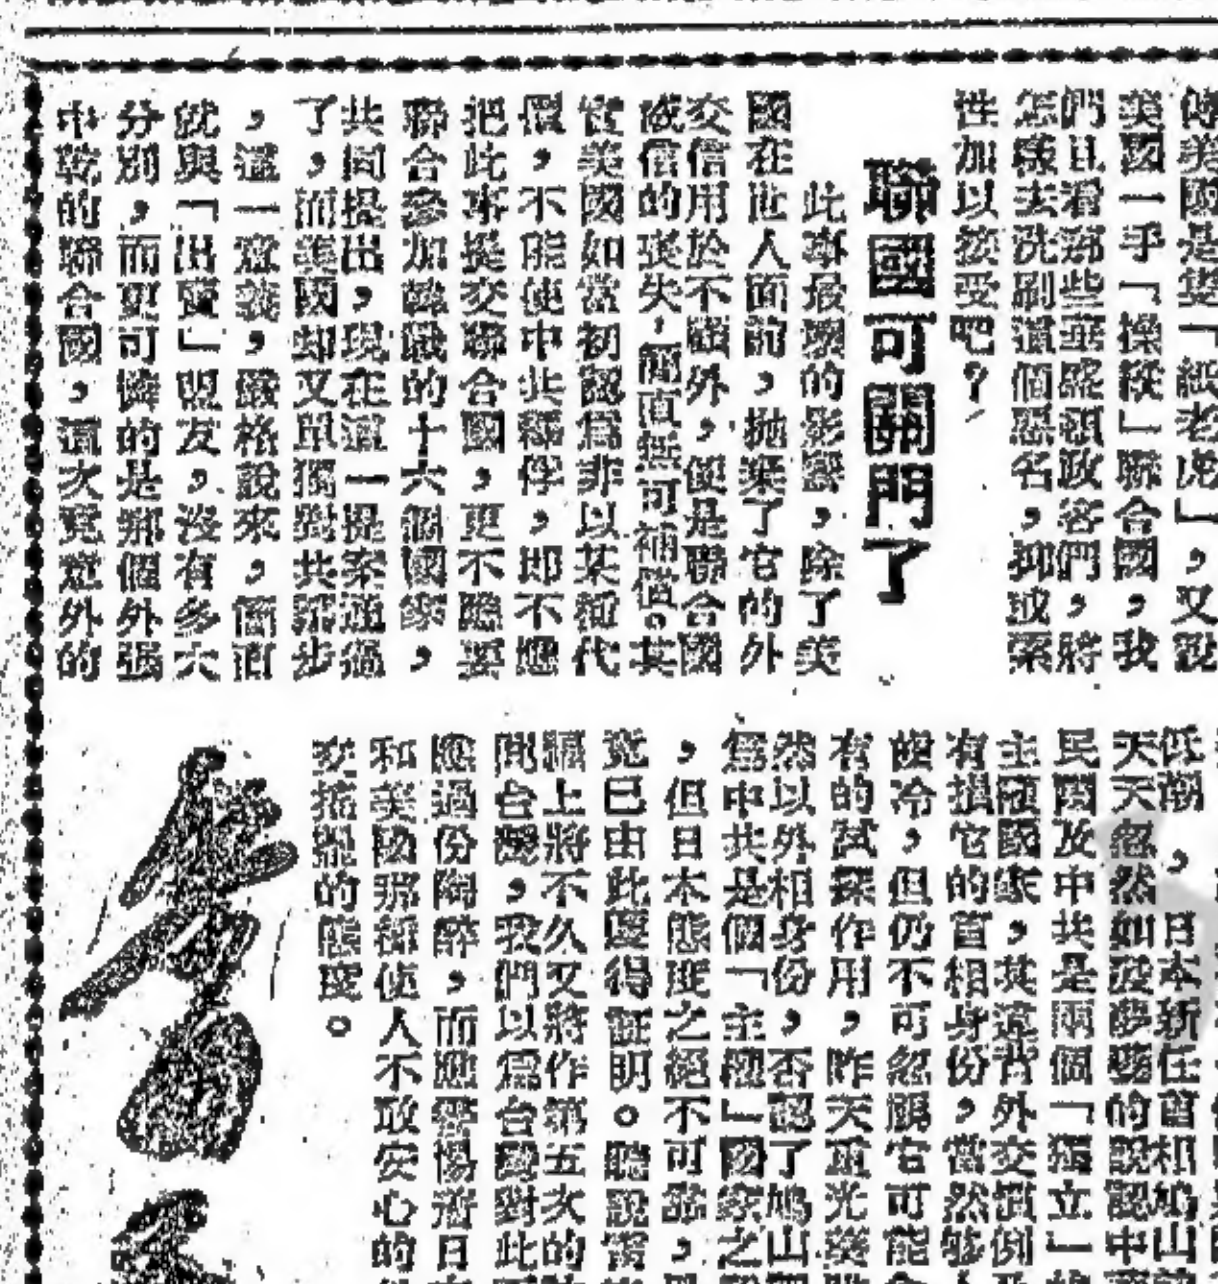 傳美國是隻「紙老虎」，又說
美國一手「操縱」聯合國，我
們且看那些華盛頓政客們，將
怎樣去洗刷這個惡名，抑或索
性加以接受吧？
聯國可關門了
此事最壞的影響，除了美
國在世人面前，拋棄了它的外
交信用於不顧外，便是聯合國
威信的喪失，簡直無可補償。其
實美國如當初認爲非以某種代
價，不能使中共釋俘，即不應
把此事提交聯合國，更不應要
聯合參加韓戰的十六個國家，
共同提出，現在這一提案通過
了，而美國却又單獨對共讓步
，這一意義，嚴格說來，簡直
就與「出賣」盟友，沒有多大
分別，而更可憐的是那個外强
中乾的聯合國，這次竟意外的
低潮，日本新任首相鳩山
天天忽然如發夢囈的說認中
民國及中共是兩個「獨立」
主權國家，其違背外交慣例
有損它的首相身份，當然够
齒冷，但仍不可忽視它可能
有的試探作用，昨天重光葵
然以外相身份，否認了鳩山
爲中共是個「主權」國家之
，但日本態度之絕不可靠，
竟已由此獲得証明。聽說雷
福上將不久又將作第五次的
問台灣，我們以爲台灣對此
應過份陶醉，而應警惕着日
和美國那種使人不敢安心的
交搖擺的態度。